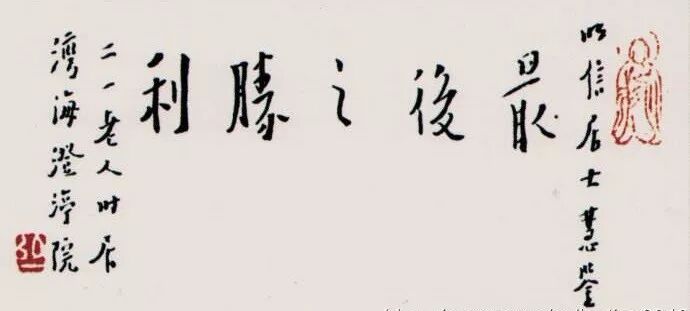 信居士慧鋻
最後之勝利
二一老人时居
灣海澄渟院